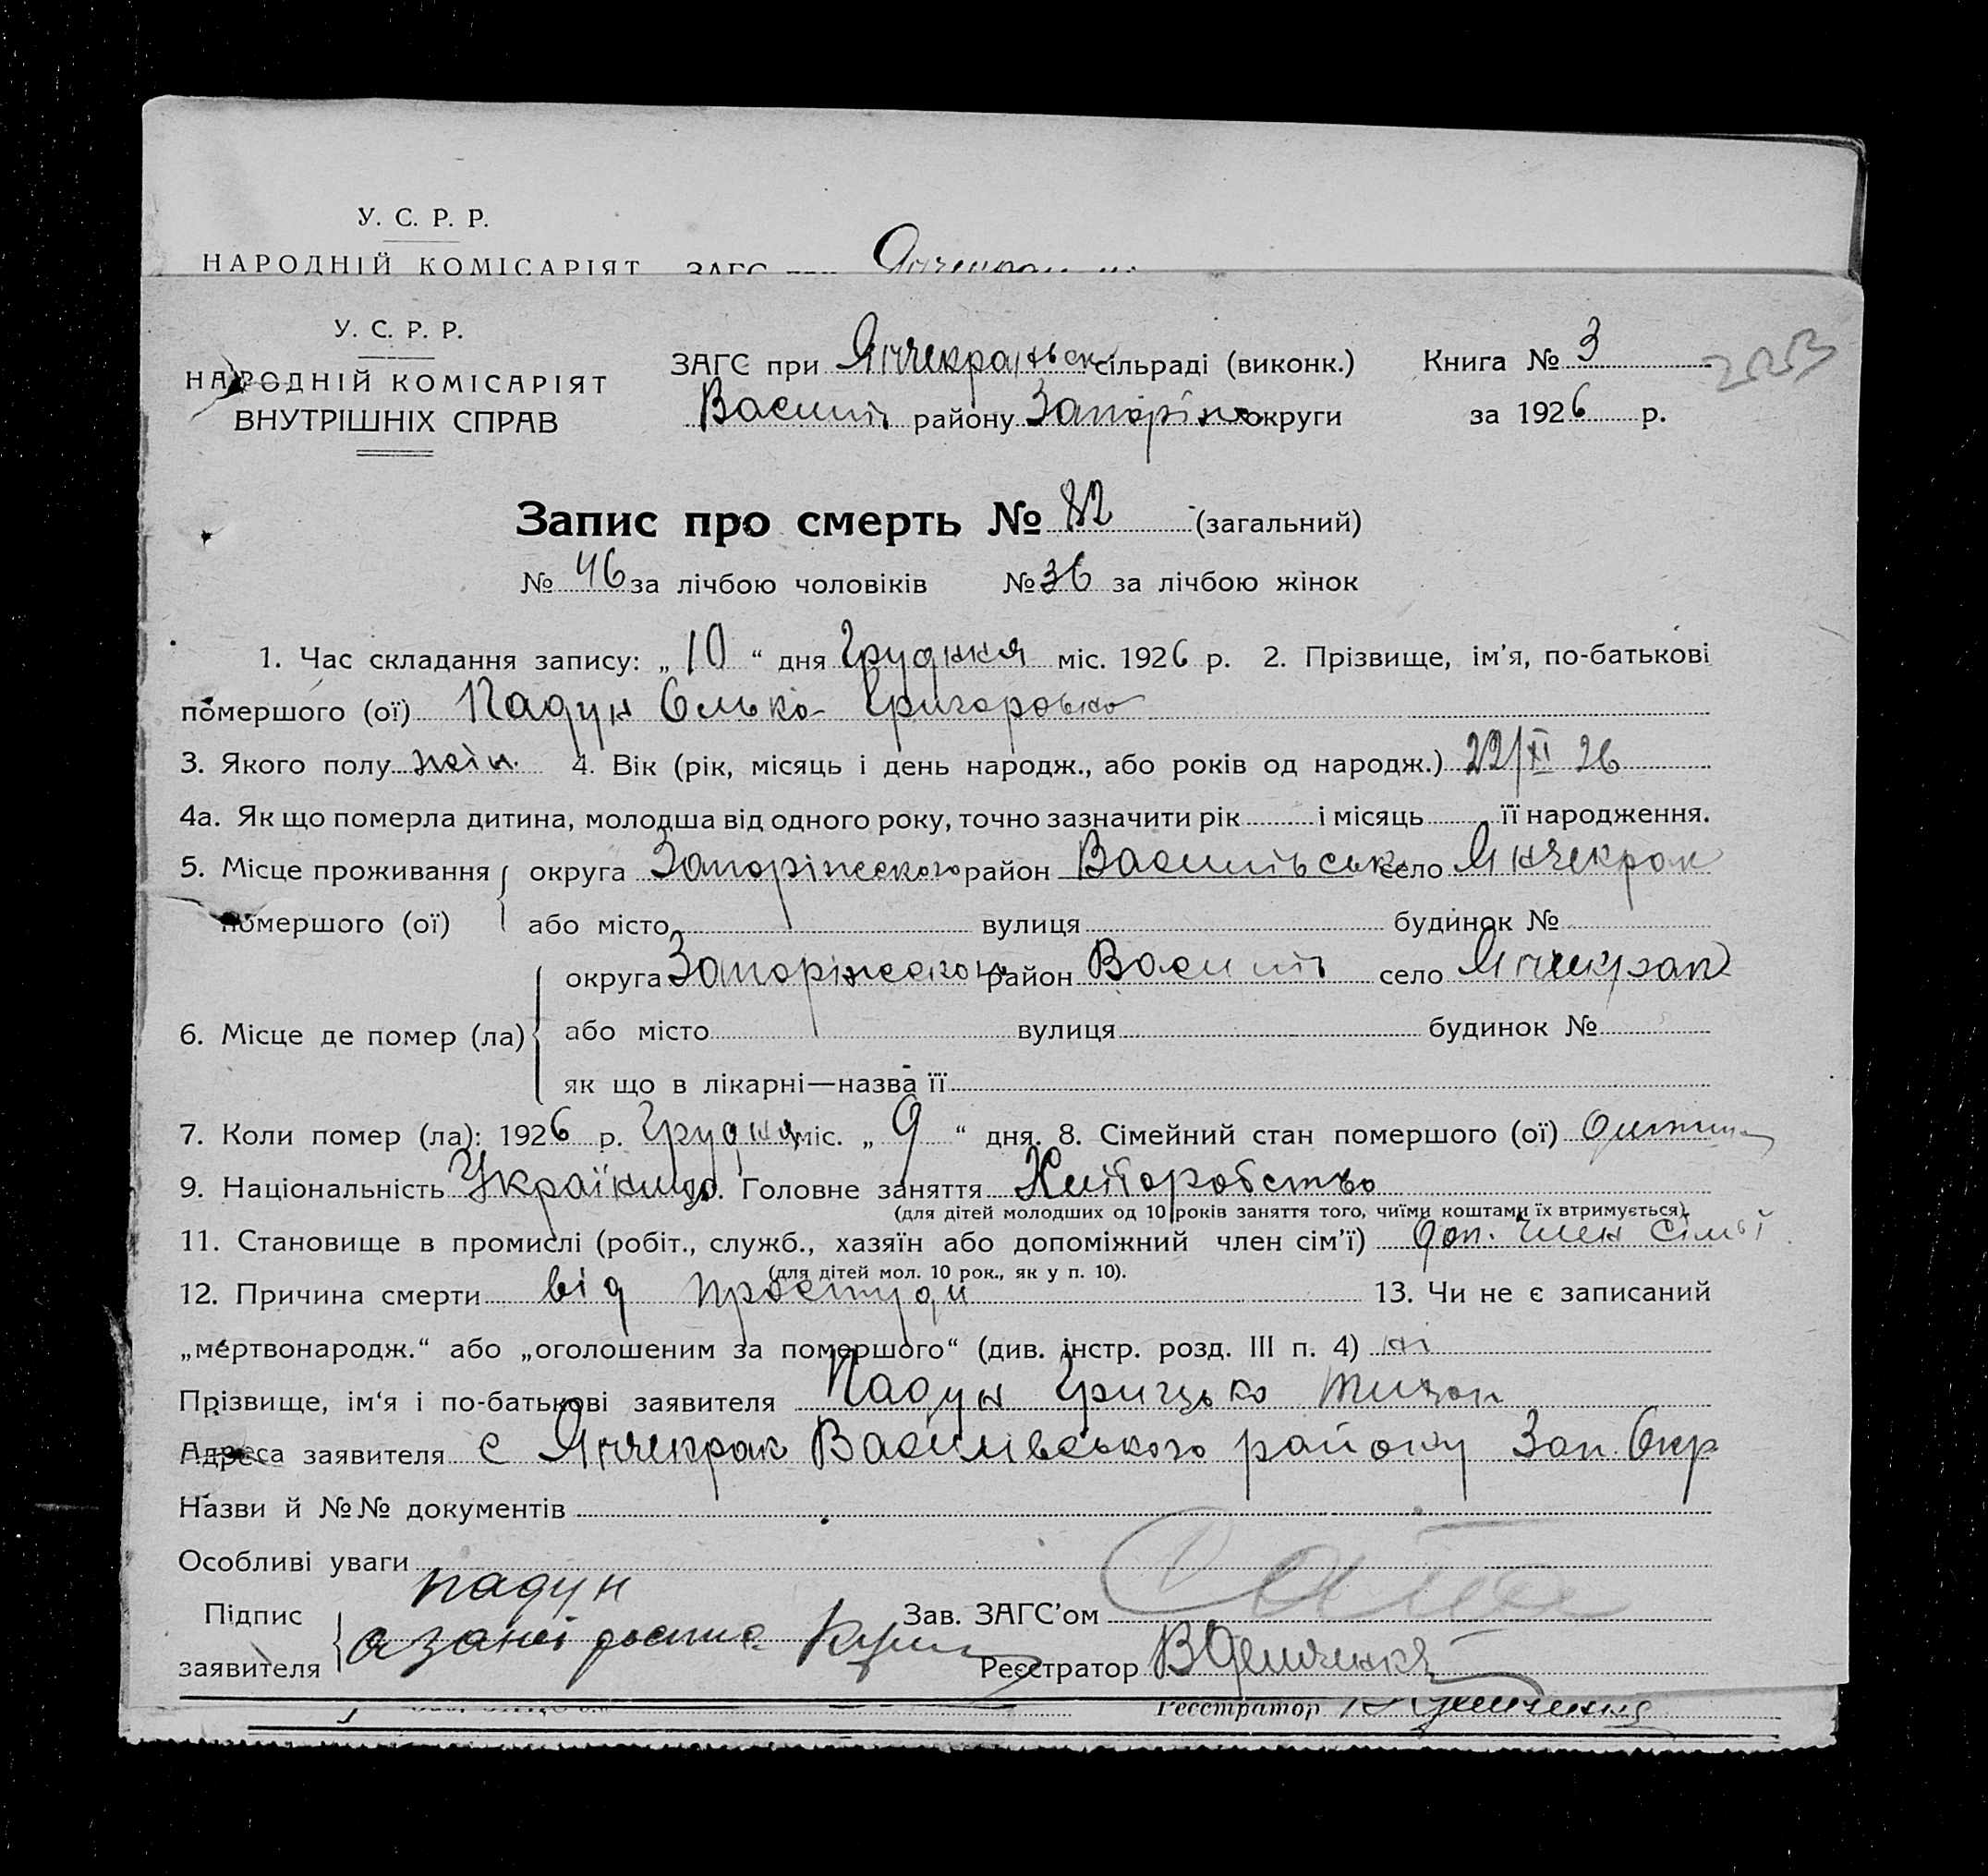 У. С. Р. Р.
НАРОДНІЙ КОМІСАРІЯТ ЗАГС при
У. С. Р. Р.
НАРОДНІЙ КОМІСАРІЯТ
ВНУТРІШНІХ СПРАВ
ЗАГС при Янчекракськ сільраді (виконк.) Книга № 3
Василів району Запоріж округи за 1926 р.
Запис про смерть № 82 (загальний)
№ 46 за лічбою чоловіків № 36 за лічбою жінок
1. Час складання запису: „10“ дня Грудня міс. 1926 р. 2. Прізвище, ім'я, по-батькові
помершого (ої) Падун Олька Григоровна
3. Якого полу жін. 4. Вік (рік, місяць і день народж., або років од народж.) 22/XI 26
4а. Як що померла дитина, молодша від одного року, точно зазначити рік і місяць її народження.
5. Місце проживання помершого (ої) округа Запоріжського район Василівськ село Янчекрак
або місто вулиця будинок №
6. Місце де помер (ла) округа Запоріжського район Василів село Янчекрак
або місто вулиця будинок №
як що в лікарні—назва її
7. Коли помер (ла): 1926 р. Грудня міс. „9“ дня. 8. Сімейний стан помершого (ої) дитина
9. Національність Україница 10. Головне заняття Хліборобство
(для дітей молодших од 10 років заняття того, чиїми коштами їх втримується).
11. Становище в промислі (робіт., служб., хазяїн або допоміжний член сім'ї) доп. член сімьї
(для дітей мол. 10 рок., як у п. 10).
12. Причина смерти від простуди 13. Чи не є записаний
„мертвонародж.“ або „оголошеним за помершого“ (див. інстр. розд. III п. 4) ні
Прізвище, ім'я і по-батькові заявителя Падун Грицько
Адреса заявителя с Янчекрак Василівського району Зап. Окр
Назви й №№ документів
Особливі уваги
Підпис заявителя Падун
Зав. ЗАГС'ом
Реєстратор
Реєстратор